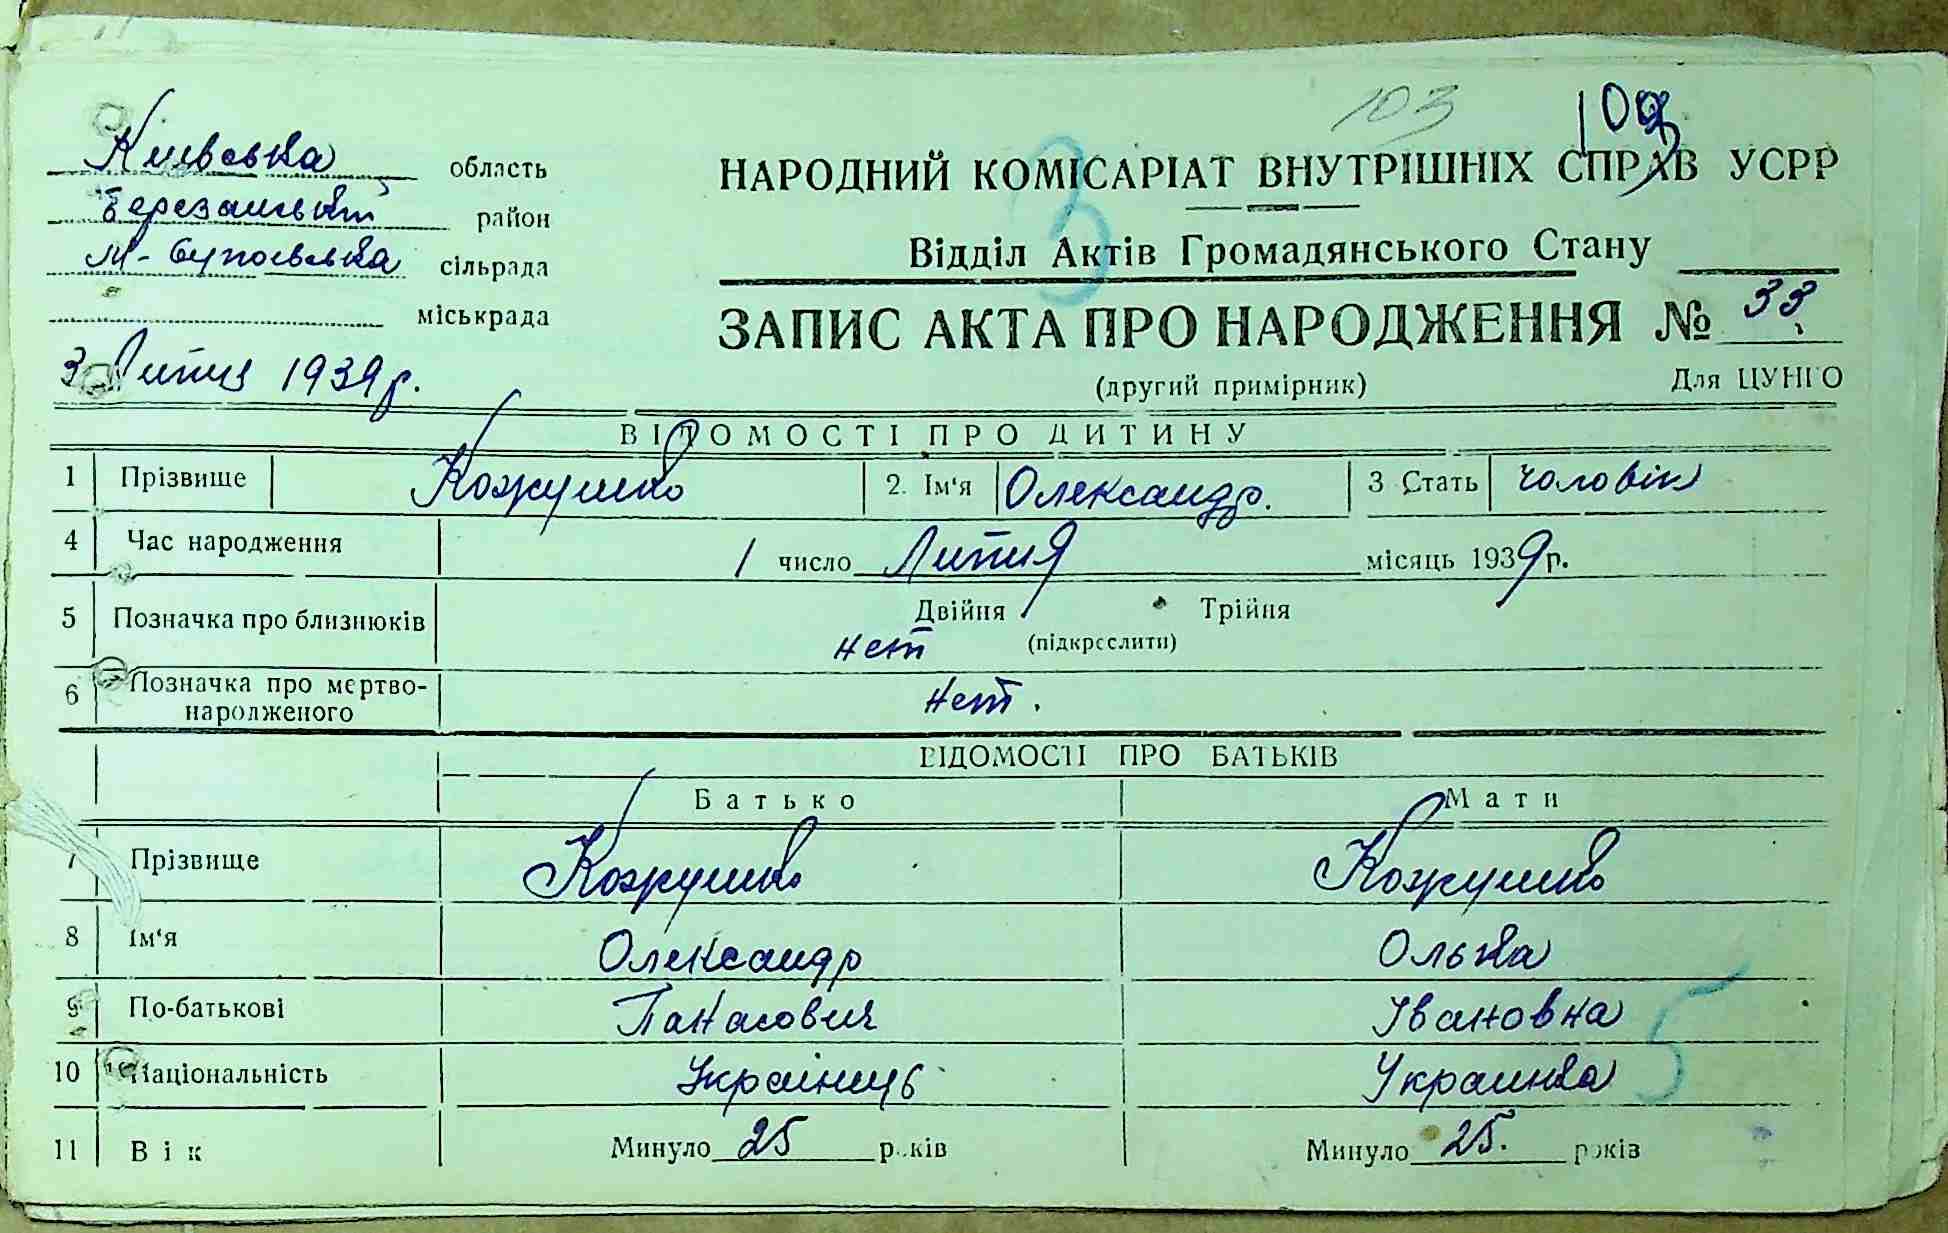 103 109
Київська область
Березанський район
М-Супоївська сільрада
міськрада
3 Липня 1939 р.
НАРОДНИЙ КОМІСАРІАТ ВНУТРІШНІХ СПРАВ УСРР
3
Відділ Актів Громадянського Стану
ЗАПИС АКТА ПРО НАРОДЖЕННЯ № 33
(другий примірник) Для ЦУНГО
ВІДОМОСТІ ПРО ДИТИНУ
1 Прізвище Кожушко 2. Ім'я Олександр. 3 Стать чоловік
4 Час народження 1 число Липня місяць 1939 р.
5 Позначка про близнюків Двійня Трійня
нет (підкреслити)
6 Позначка про мертвонародженого нет.
ВІДОМОСТІ ПРО БАТЬКІВ
Батько Мати
7 Прізвище Кожушко Кожушко
8 Ім'я Олександр Ольга
9 По-батькові Панасович Івановна
10 Національність Українець Украинка
5
11 Вік Минуло 25 років Минуло 25. років